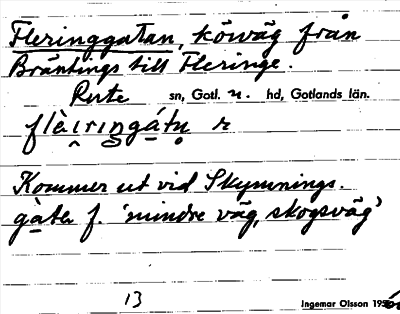 Fleringgatan, körväg från
Bräntings till Fleringe.
Rute sn, Gotl. n. hd, Gotlands län.
Kommer ut vid Skymnings.
gàta f. 'mindre väg, skogsväg'
13
Ingemar Olsson